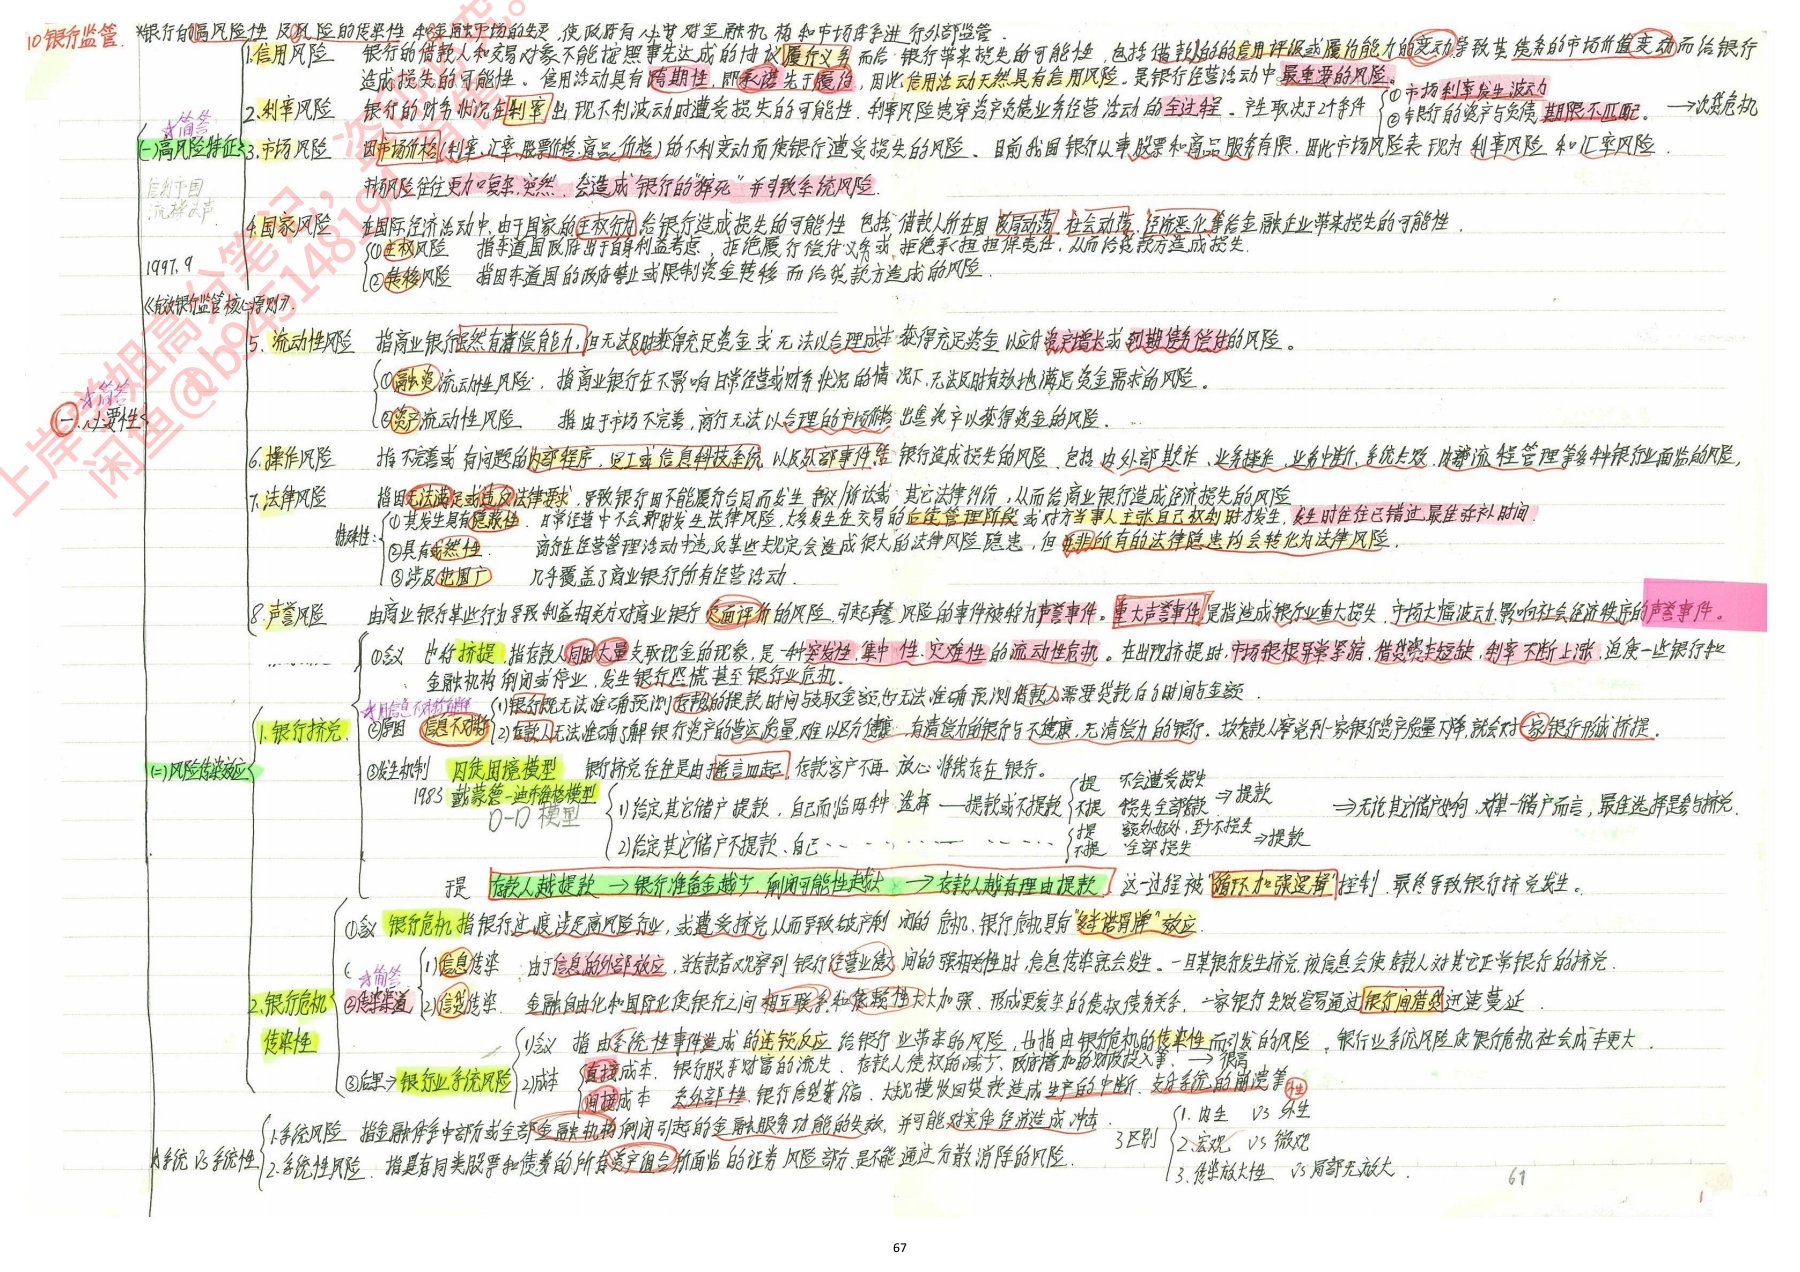 10 银行监管. *银行的高风险性 及风险的传染性 和金融市场的失灵, 使政府有必要对金融机构和市场体系进行外部监管.
1.信用风险 银行的借款人和交易对象不能按照事先达成的协议履行义务而给银行带来损失的可能性, 包括借款人的信用评级或履约能力的变动导致其债务的市场价值变动而给银行
造成损失的可能性. 信用活动具有跨期性, 即承诺先于履约, 因此信用活动天然具有信用风险. 是银行经营活动中最重要的风险。
2.利率风险 银行的财务状况在利率出现不利波动时遭受损失的可能性, 利率风险贯穿资产负债业务经营活动的全过程. 产生取决于2个条件 ①市场利率发生波动
②银行的资产与负债期限不匹配。 →次贷危机
☆简答
(一)高风险特征
3.市场风险 因市场价格(利率、汇率、股票价格、商品价格)的不利变动而使银行遭受损失的风险. 目前我国银行从事股票和商品服务有限, 因此市场风险表现为利率风险和汇率风险.
市场风险往往更加复杂、突然, 会造成银行的"猝死"并引致系统风险.
信利于国
流操法声
4.国家风险 在国际经济活动中, 由于国家的主权行为给银行造成损失的可能性 包括借款人所在国政局动荡、社会动荡、经济恶化等给金融企业带来损失的可能性.
①主权风险 指东道国政府出于自身利益考虑, 拒绝履行偿付义务或拒绝承担担保责任, 从而给贷款方造成损失.
1997.9
②转移风险 指因东道国的政府禁止或限制资金转移而给贷款方造成的风险.
《有效银行监管核心原则》.
5.流动性风险 指商业银行虽然有清偿能力, 但无法及时获得充足资金或无法以合理成本获得充足资金以应对资产增长或到期债务偿付的风险。
①融资流动性风险. 指商业银行在不影响日常经营或财务状况的情况下, 无法及时有效地满足资金需求的风险。
☆简答
一、必要性
②资产流动性风险 指由于市场不完善, 商行无法以合理的市场价格出售资产以获得资金的风险.
6.操作风险 指不完善或有问题的内部程序, 员工或信息科技系统, 以及外部事件给银行造成损失的风险, 包括内外部欺诈、业务操作、业务中断、系统失效、内部流程管理等多种银行业面临的风险,
7.法律风险 指因无法满足或违反法律要求, 导致银行因不能履行合同而发生争议/诉讼或其它法律纠纷, 从而给商业银行造成经济损失的风险
特殊性: ①其发生具有隐蔽性. 日常经营中不会即时发生法律风险, 大多发生在交易的后续管理阶段或对方当事人主张自己权利时才发生, 发生时往往已错过最佳弥补时间.
②具有或然性. 商行在经营管理活动中违反某些规定会造成很大的法律风险隐患, 但并非所有的法律隐患均会转化为法律风险.
③涉及范围广 几乎覆盖了商业银行所有经营活动.
8.声誉风险 由商业银行某些行为导致利益相关方对商业银行负面评价的风险, 引起声誉风险的事件被称为声誉事件。重大声誉事件是指造成银行业重大损失、市场大幅波动、影响社会经济秩序的声誉事件。
①含义 也称挤提, 指存款人同时大量支取现金的现象, 是一种突发性、集中性、灾难性的流动性危机。在出现挤提时, 市场银根异常紧缩, 借贷资本短缺, 利率不断上涨, 迫使一些银行和
金融机构倒闭或停业, 发生银行恐慌甚至银行业危机。
☆用信息不对称解释
1.银行挤兑
②原因 信息不对称 1)银行既无法准确预测存款的提款时间与支取金额, 也无法准确预测借款人需要贷款的时间与金额.
2)存款人无法准确了解银行资产的营运质量, 难以区分健康、有清偿力的银行与不健康、无清偿力的银行. 故存款人察觉到一家银行资产质量下降, 就会对一家银行形成挤提。
(二)风险传染效应
③发生机制 囚徒困境模型 银行挤兑往往是由谣言而起, 存款客户不再放心将钱存在银行。
1983 戴蒙德-迪布维格模型
D-D 模型
1)给定其它储户提款, 自己面临两种选择 — 提款或不提款 提 不会遭受损失
不提 损失全部存款 ⇒提款
2)给定其它储户不提款、自己 …… 提 额外好处, 至少不损失
不提 全部损失 ⇒提款
⇒无论其它储户如何, 对单一储户而言, 最佳选择是参与挤兑.
于是 存款人越提款 → 银行准备金越少, 倒闭可能性越大 → 存款人越有理由提款 这一过程被"循环加强逻辑"控制, 最终导致银行挤兑发生。
①含义 银行危机指银行过度涉足高风险行业, 或遭受挤兑从而导致破产倒闭的危机, 银行危机具有"多米诺骨牌"效应.
☆简答
2.银行危机传染性
②传染渠道 1)信息传染 由于信息的外部效应, 当存款者观察到银行经营业绩之间的强相关性时, 信息传染就会发生. 一旦某银行发生挤兑, 该信息会使存款人对其它正常银行的挤兑.
2)信贷传染. 金融自由化和国际化使银行之间相互联系和依赖性大大加强, 形成更复杂的债权债务关系, 一家银行失败容易通过银行间借贷迅速蔓延.
③后果→银行业系统风险 1)含义 指由系统性事件造成的连锁反应给银行业带来的风险, 也指由银行危机的传染性而引发的风险. 银行业系统风险使银行危机社会成本更大.
2)成本 直接成本. 银行股东财富的流失、存款人债权的减少、政府增加的财政投入等. → 很高
间接成本 负外部性. 银行信贷萎缩、大规模收回贷款造成生产的中断、支付系统的崩溃等
☆系统 VS 系统性
1.系统风险 指金融体系中部分或全部金融机构倒闭引起的金融服务功能的失败, 并可能对实体经济造成冲击.
2.系统性风险. 指具有同类股票和债券的所有资产组合所面临的证券风险部分, 是不能通过分散消除的风险.
3区别 1.内生 VS 外生
2.宏观 VS 微观
3.传染放大性 VS 局部无放大.
61
67
上岸学姐高分笔记
闲鱼@b94514819